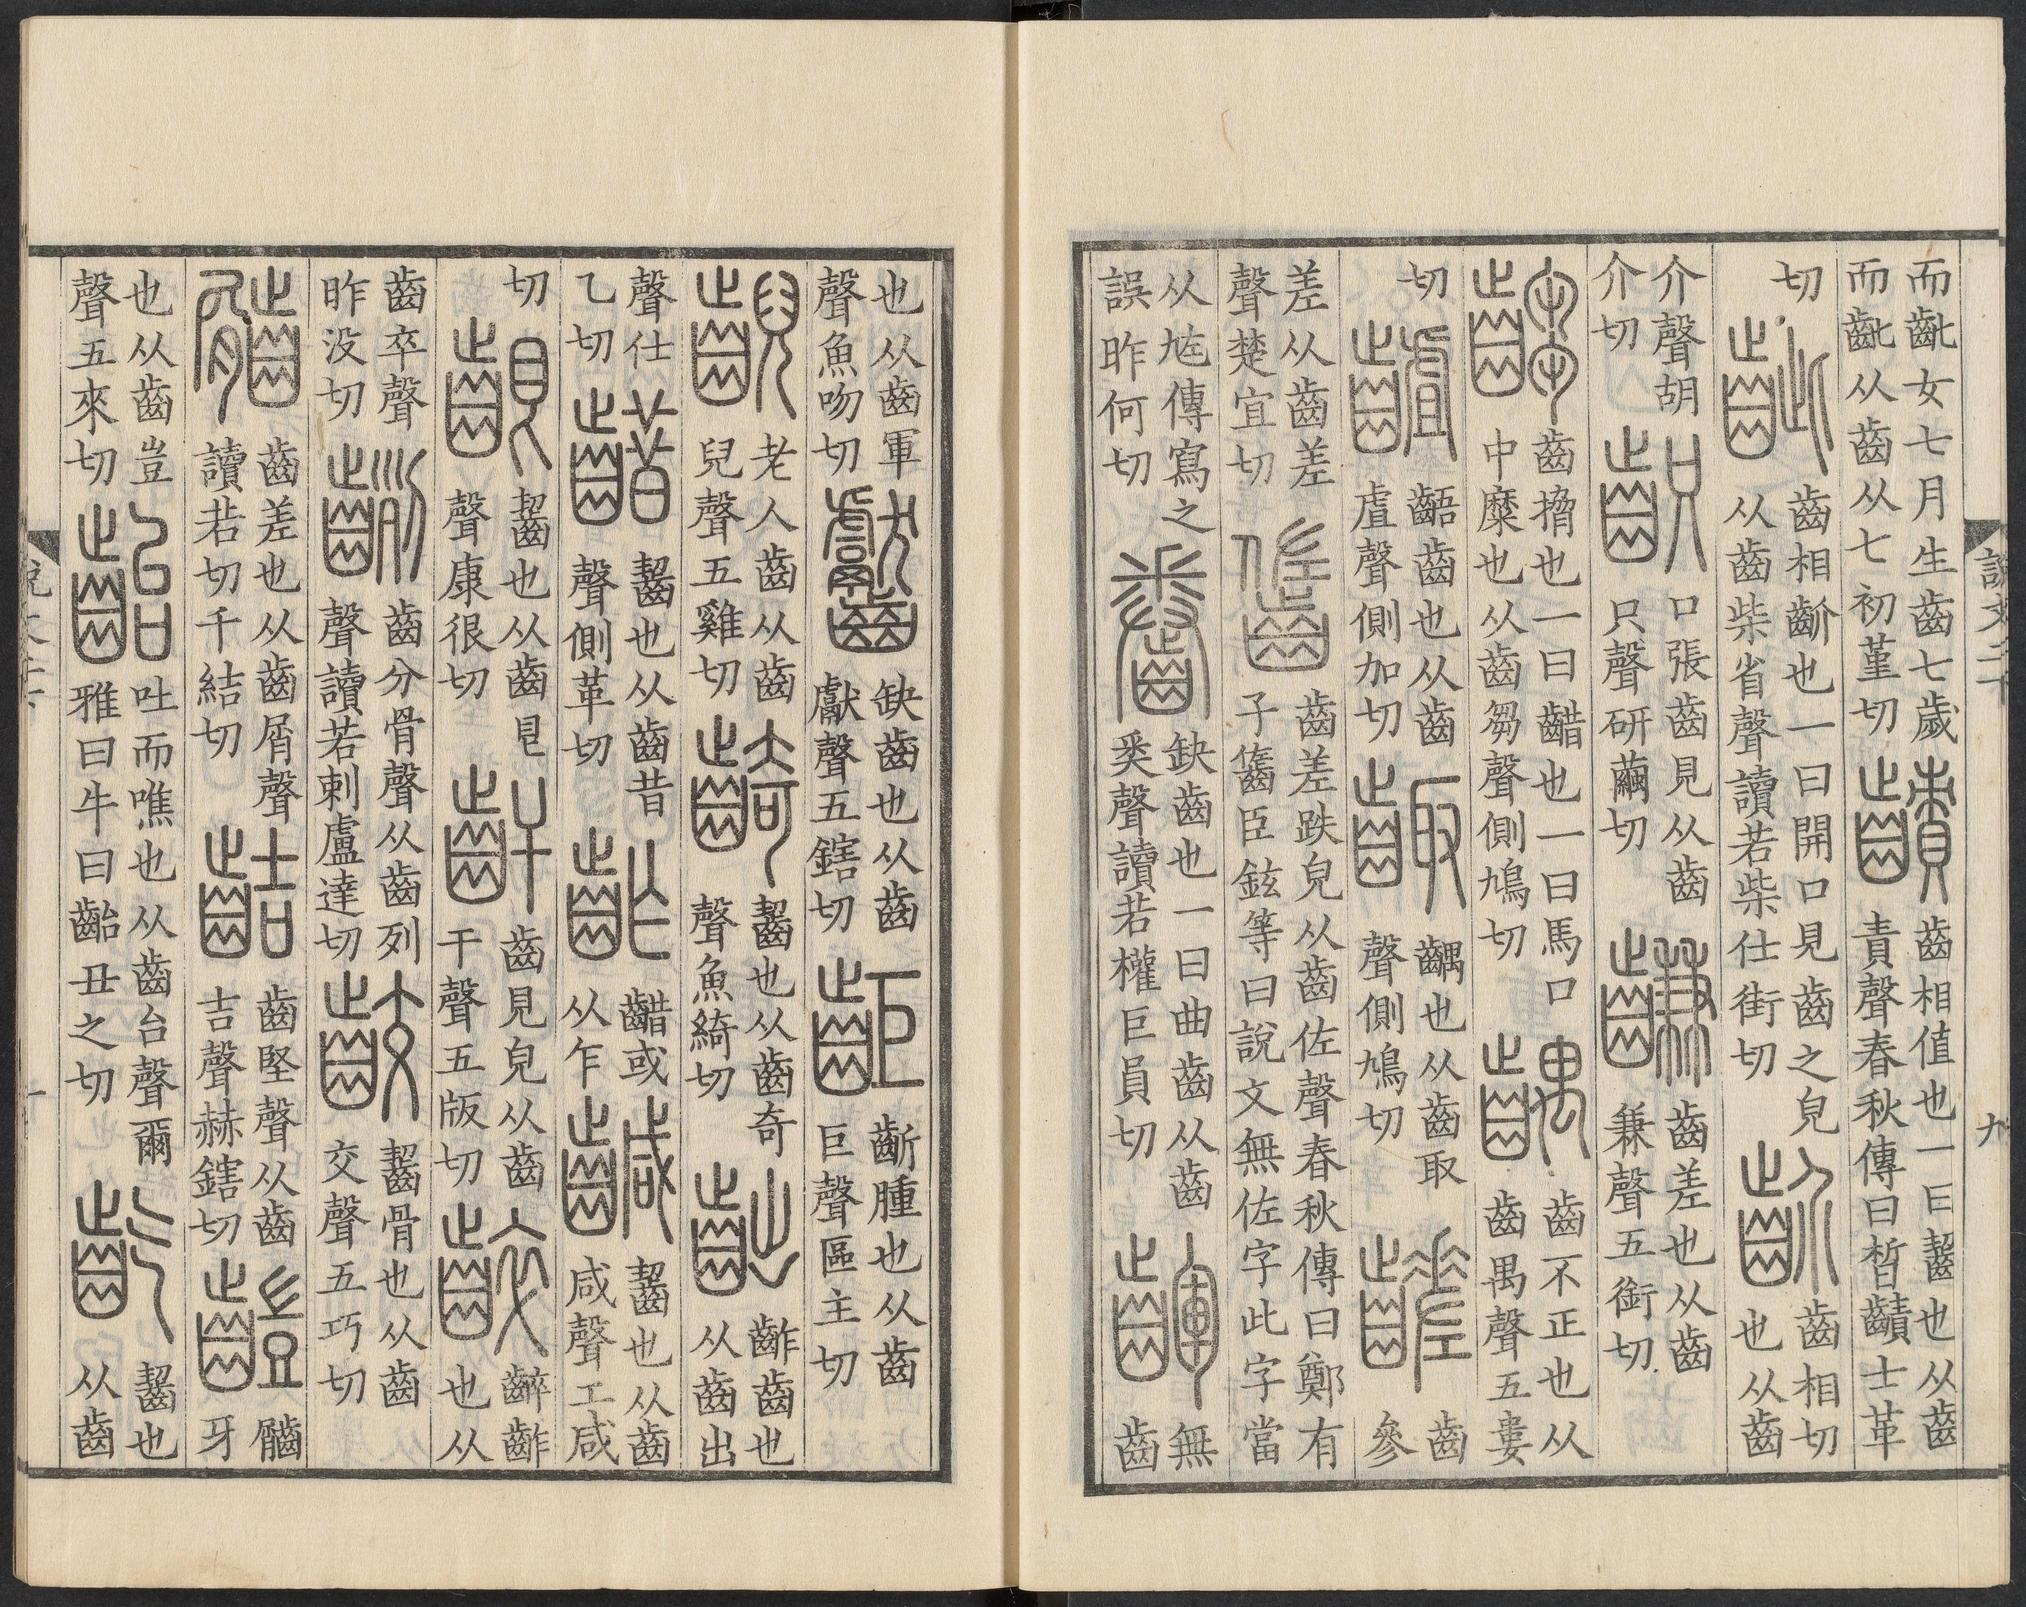 說文二下 九
而齔女七月生齒七歲而齔从齒从七初堇切 䶦 齒相值也一曰齧也从齒責聲春秋傳曰晳䶦士革
切 齜 齒相齘也一曰開口見齒之皃从齒柴省聲讀若柴仕街切 齘 齒相切也从齒
介聲胡介切 齞 口張齒見从齒只聲研繭切 䶢 齒差也从齒兼聲五銜切
齺 齒搚也一曰齰也一曰馬口中糜也从齒芻聲側鳩切 齵 齒不正也从齒禺聲五婁
切 䶥 齬齒也从齒虘聲側加切 齱 齵也从齒取聲側鳩切 齹 齒參
差从齒差聲楚宜切 齒差跌皃从齒佐聲春秋傳曰鄭有子臣鉉等曰說文無佐字此字當
从㝾傳寫之誤昨何切 齤 缺齒也一曰曲齒从齒聲讀若權巨員切 齳 無齒
也从齒軍聲魚吻切 齾 缺齒也从齒獻聲五鎋切 䶙 齗腫也从齒巨聲區主切
齯 老人齒从齒兒聲五雞切 齮 齧也从齒奇聲魚綺切 齚齒也从齒出
聲仕乙切 齰 齧也从齒昔聲側革切 齚 齰或从乍 䶠 齧也从齒咸聲工咸
切 齦 齧也从齒艮聲康很切 䶗 齒見皃从齒干聲五版切 䶝 䶝齚也从
齒卒聲昨没切 䶛 齒分骨聲从齒列聲讀若剌盧達切 齩 齧骨也从齒交聲五巧切
齒差也从齒屑聲讀若切千結切 齒堅聲从齒吉聲赫鎋切 牙
也从齒豈聲五來切 齝 吐而噍也从齒台聲爾雅曰牛曰齝丑之切 齕 齧也从齒